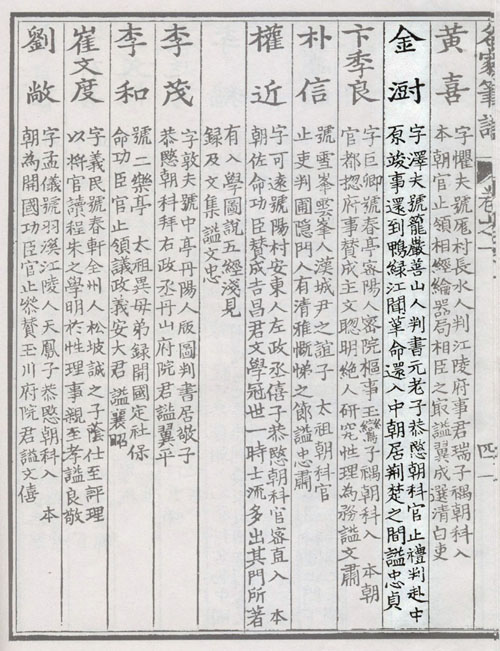 名家筆譜 卷之一 四一
黃喜
字懼夫號厖村長水人判江陵府事君瑞子禑朝科入
本朝官止領相經綸器局相臣之㝡諡翼成選清白吏
金澍
字澤夫號籠巖善山人判書元老子恭愍朝科官止禮判赴中
原竣事還到鴨綠江聞革命還入中朝居荊楚之間諡忠貞
卞季良
字巨卿號春亭密陽人密院樞事玉子禑朝科入 本朝
官都揔府事賛成主文聦明絶人研究性理為務諡文肅
朴信
號雲峯雲峯人漢城尹之誼子 太祖朝科官
止吏判圃隱門人有清雅慨悌之節諡忠肅
權近
字可遠號陽村安東人左政丞僖子恭愍朝科官密直入 本
朝佐命功臣賛成吉昌君文學冠世一時士流多出其門所著
有入學圖說五經淺見
錄及文集諡文忠
李茂
字敦夫號中亭丹陽人版圖判書居敬子
恭愍朝科拜右政丞丹山府院君諡翼平
李和
號二樂亭 太祖異母弟錄開國定社保
命功臣官止領議政義安大君諡襄昭
崔文度
字義民號春軒全州人松坡誠之子蔭仕至評理
以官讀程朱之學明於性理事親至孝諡良敬
劉敞
字孟儀號羽溪江陵人天鳳子恭愍朝科入 本
朝為開國功臣官止參賛玉川府院君諡文僖